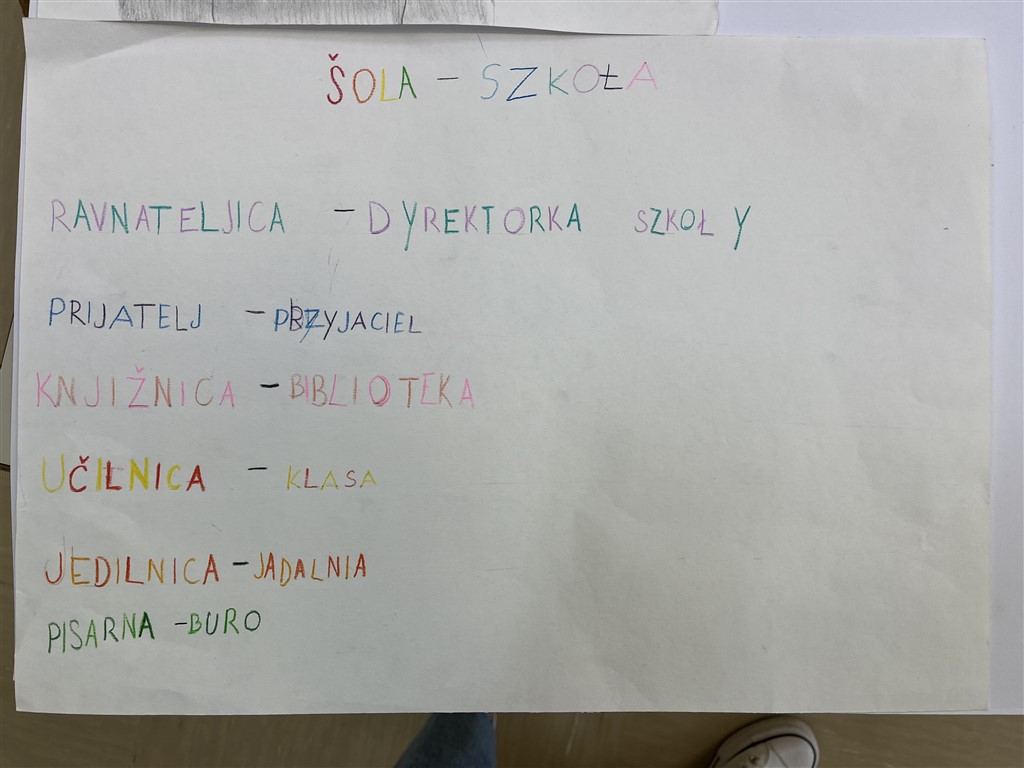 ŠOLA - SZKOŁA
RAVNATELJICA - DYREKTORKA SZKOŁY
PRIJATELJ - PRZYJACIEL
KNJIŽNICA - BIBLIOTEKA
UČILNICA - KLASA
JEDILNICA - JADALNIA
PISARNA - BURO